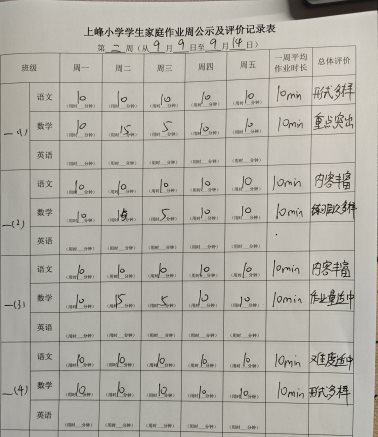 上峰小学学生家庭作业周公示及评价记录表
第 二 周（从 9 月 9 日至 9 月 14 日）
班级 周一 周二 周三 周四 周五 一周平均作业时长 总体评价
一（1） 语文 10 10 10 10 10 10min 形式多样
（用时 分钟） （用时 分钟） （用时 分钟） （用时 分钟） （用时 分钟）
数学 10 15 5 10 10 10min 重点突出
（用时 分钟） （用时 分钟） （用时 分钟） （用时 分钟） （用时 分钟）
英语
（用时 分钟） （用时 分钟） （用时 分钟） （用时 分钟） （用时 分钟）
一（2） 语文 10 10 10 10 10 10min 内容丰富
（用时 分钟） （用时 分钟） （用时 分钟） （用时 分钟） （用时 分钟）
数学 10 15 5 10 10 10min 多样
（用时 分钟） （用时 分钟） （用时 分钟） （用时 分钟） （用时 分钟）
英语
（用时 分钟） （用时 分钟） （用时 分钟） （用时 分钟） （用时 分钟）
一（3） 语文 10 10 10 10 10 10min 内容丰富
（用时 分钟） （用时 分钟） （用时 分钟） （用时 分钟） （用时 分钟）
数学 10 15 5 10 10 10min 作业量适中
（用时 分钟） （用时 分钟） （用时 分钟） （用时 分钟） （用时 分钟）
英语
（用时 分钟） （用时 分钟） （用时 分钟） （用时 分钟） （用时 分钟）
一（4） 语文 10 10 10 10 10 10min 难度适中
（用时 分钟） （用时 分钟） （用时 分钟） （用时 分钟） （用时 分钟）
数学 10 10 10 10 10 10min 形式多样
（用时 分钟） （用时 分钟） （用时 分钟） （用时 分钟） （用时 分钟）
英语
（用时 分钟） （用时 分钟） （用时 分钟） （用时 分钟） （用时 分钟）